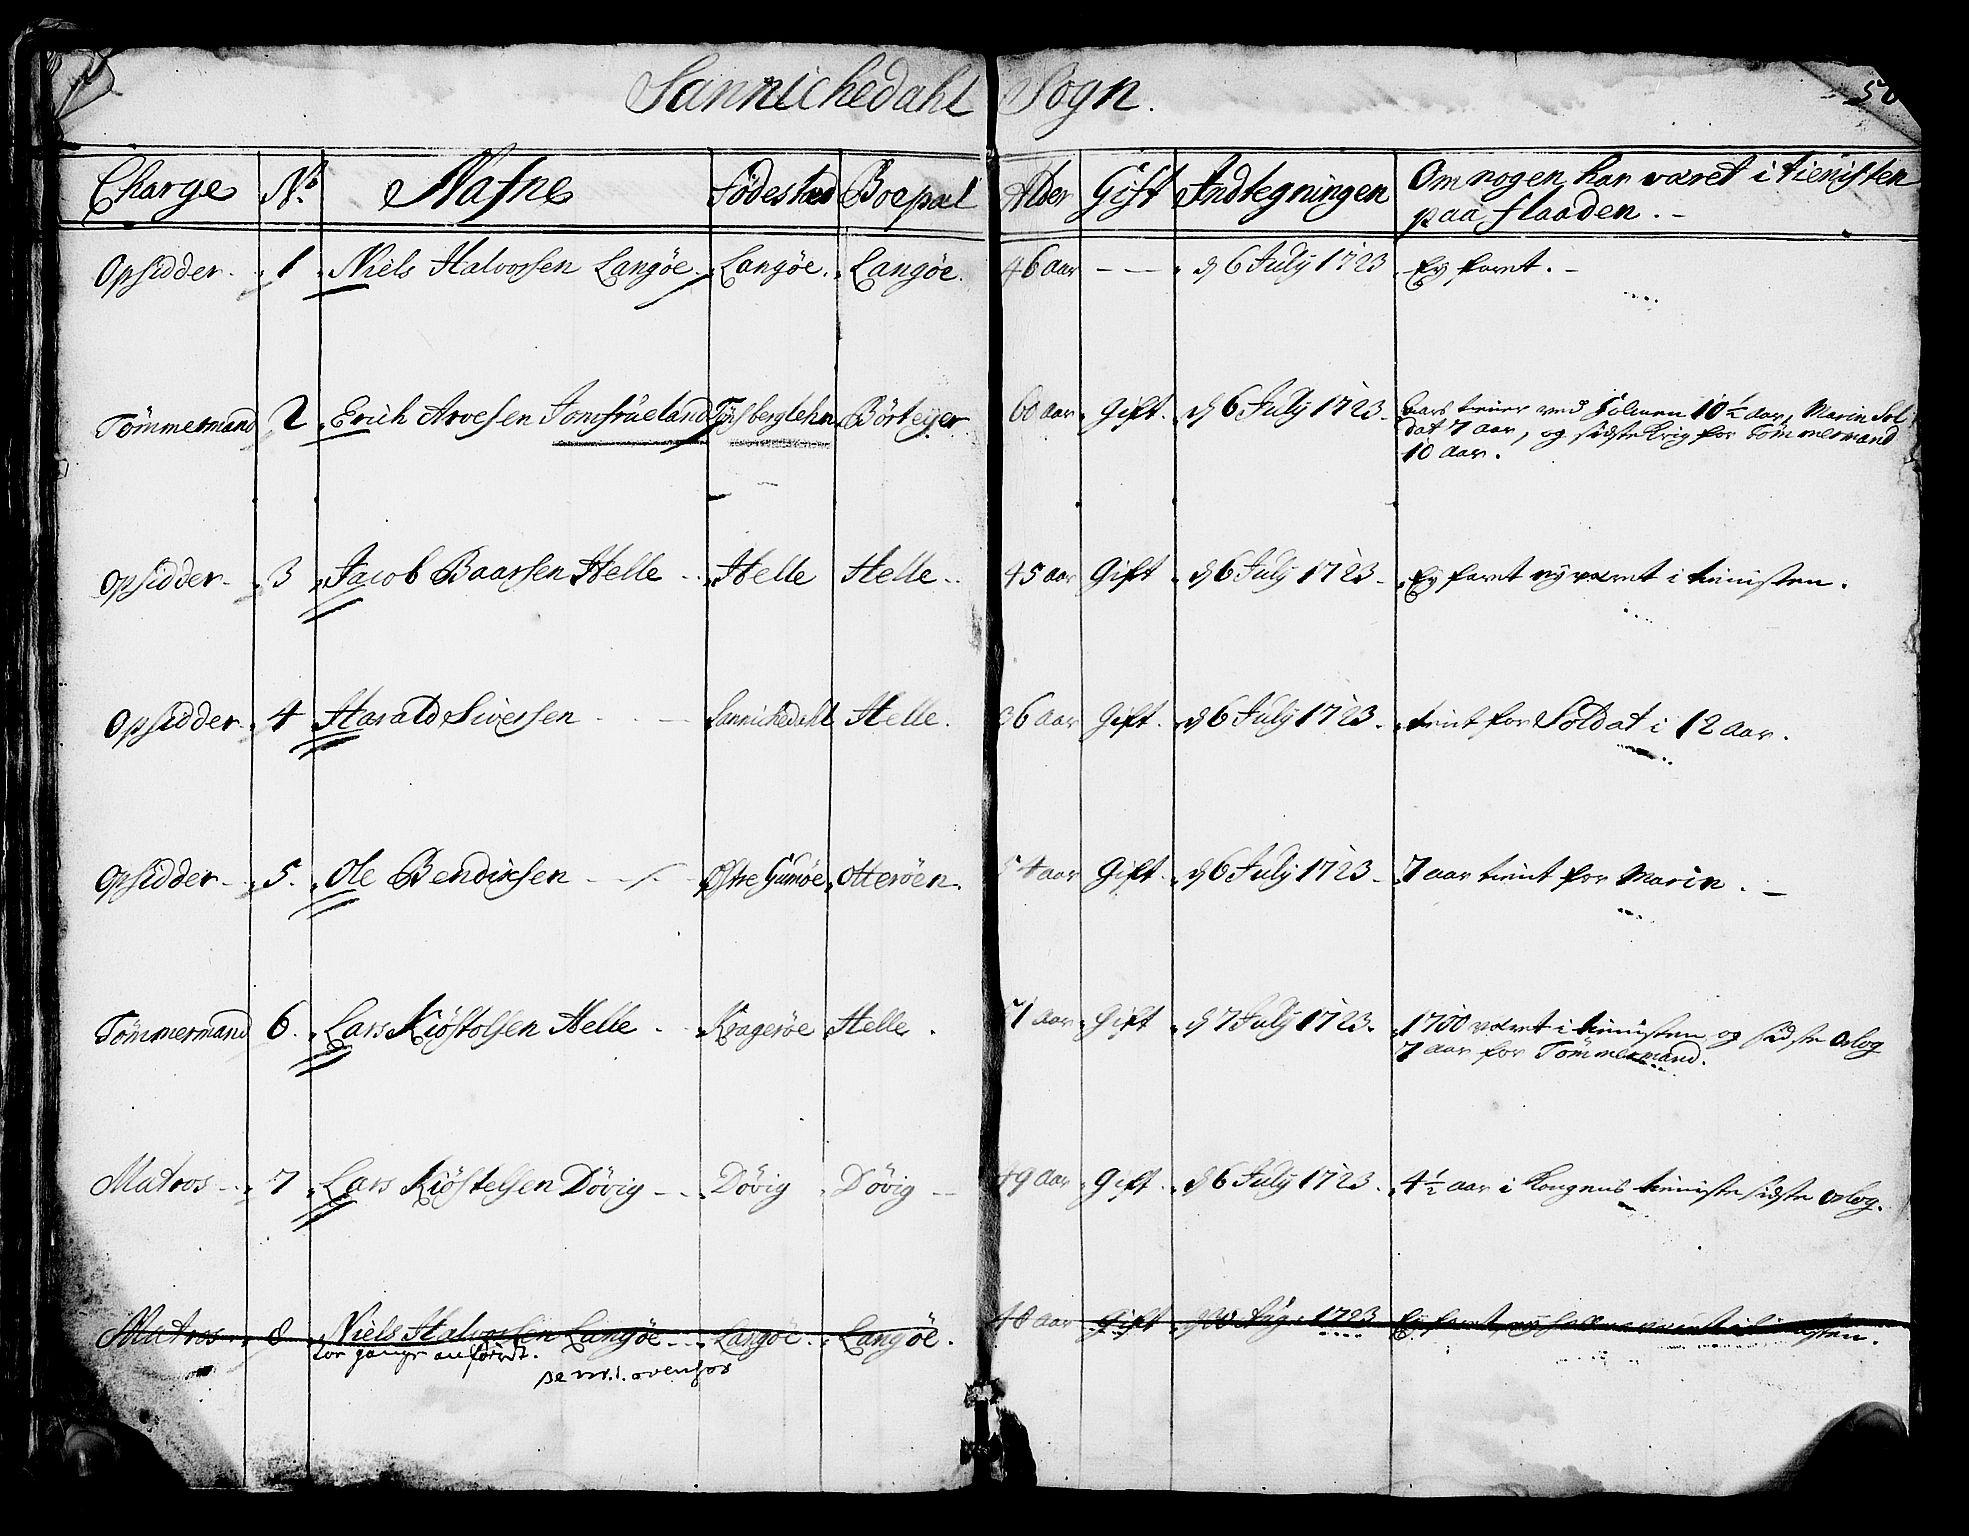 Sannichedahl Sogn.
50
Charge No. Nafne Födestæd Boepæl Alder Gift Indtegningen Om nogen har været i tienisten
paa flaaden. -
Opsidder - 1 Niels Halvorsen Langöe - Langöe. Langöe. 46 aar - - d 6 July 1723 Ey faret. -
Tömmermand 2 Erich Arvesen Jomfrueland Tönsberglehn Börteyer 60 aar Gift. d 6 July 1723. ved Holmen 10 ½ aar, Marin Sol
dat 7 aar, og sidste krig for Tömmermand
10 aar.
Opsidder - 3 Jacob Baarsen Helle - Helle Helle - 45 aar Gift d 6 July 1723 - Ey faret ey været i tienisten.
Opsidder - 4 Harald Siversen - - - Sannichedahl Helle. 66 aar Gift. d 6 July 1723. tient for Soldat i 12 aar.
Opsidder - 5. Ole Bendixsen - - - Östre Gumöe Otteröen. 54 aar Gift. d 6 July 1723 - 7 aar tient for Marin. -
Tömmermand 6. Lars Kiöstolsen Helle - Krageröe Helle. 51 aar Gift d 7 July 1723. 1700 været i tienisten og sidste Orlog
7 aar for Tömmermand.
Matros - 7 Lars Kiöstelsen Dövig - - Dövig Dövig - 49 aar Gift. d 6 July 1723. 4 ½ aar i Kongens tieniste sidste Orlog.
Matros - 8. Niels Halvorsen Langöe - Langöe. Langöe. 48 aar Gift 1723 Ey faret, ey været i tienisten.
tor gange anfördt.
se nr. 1. ovenfor